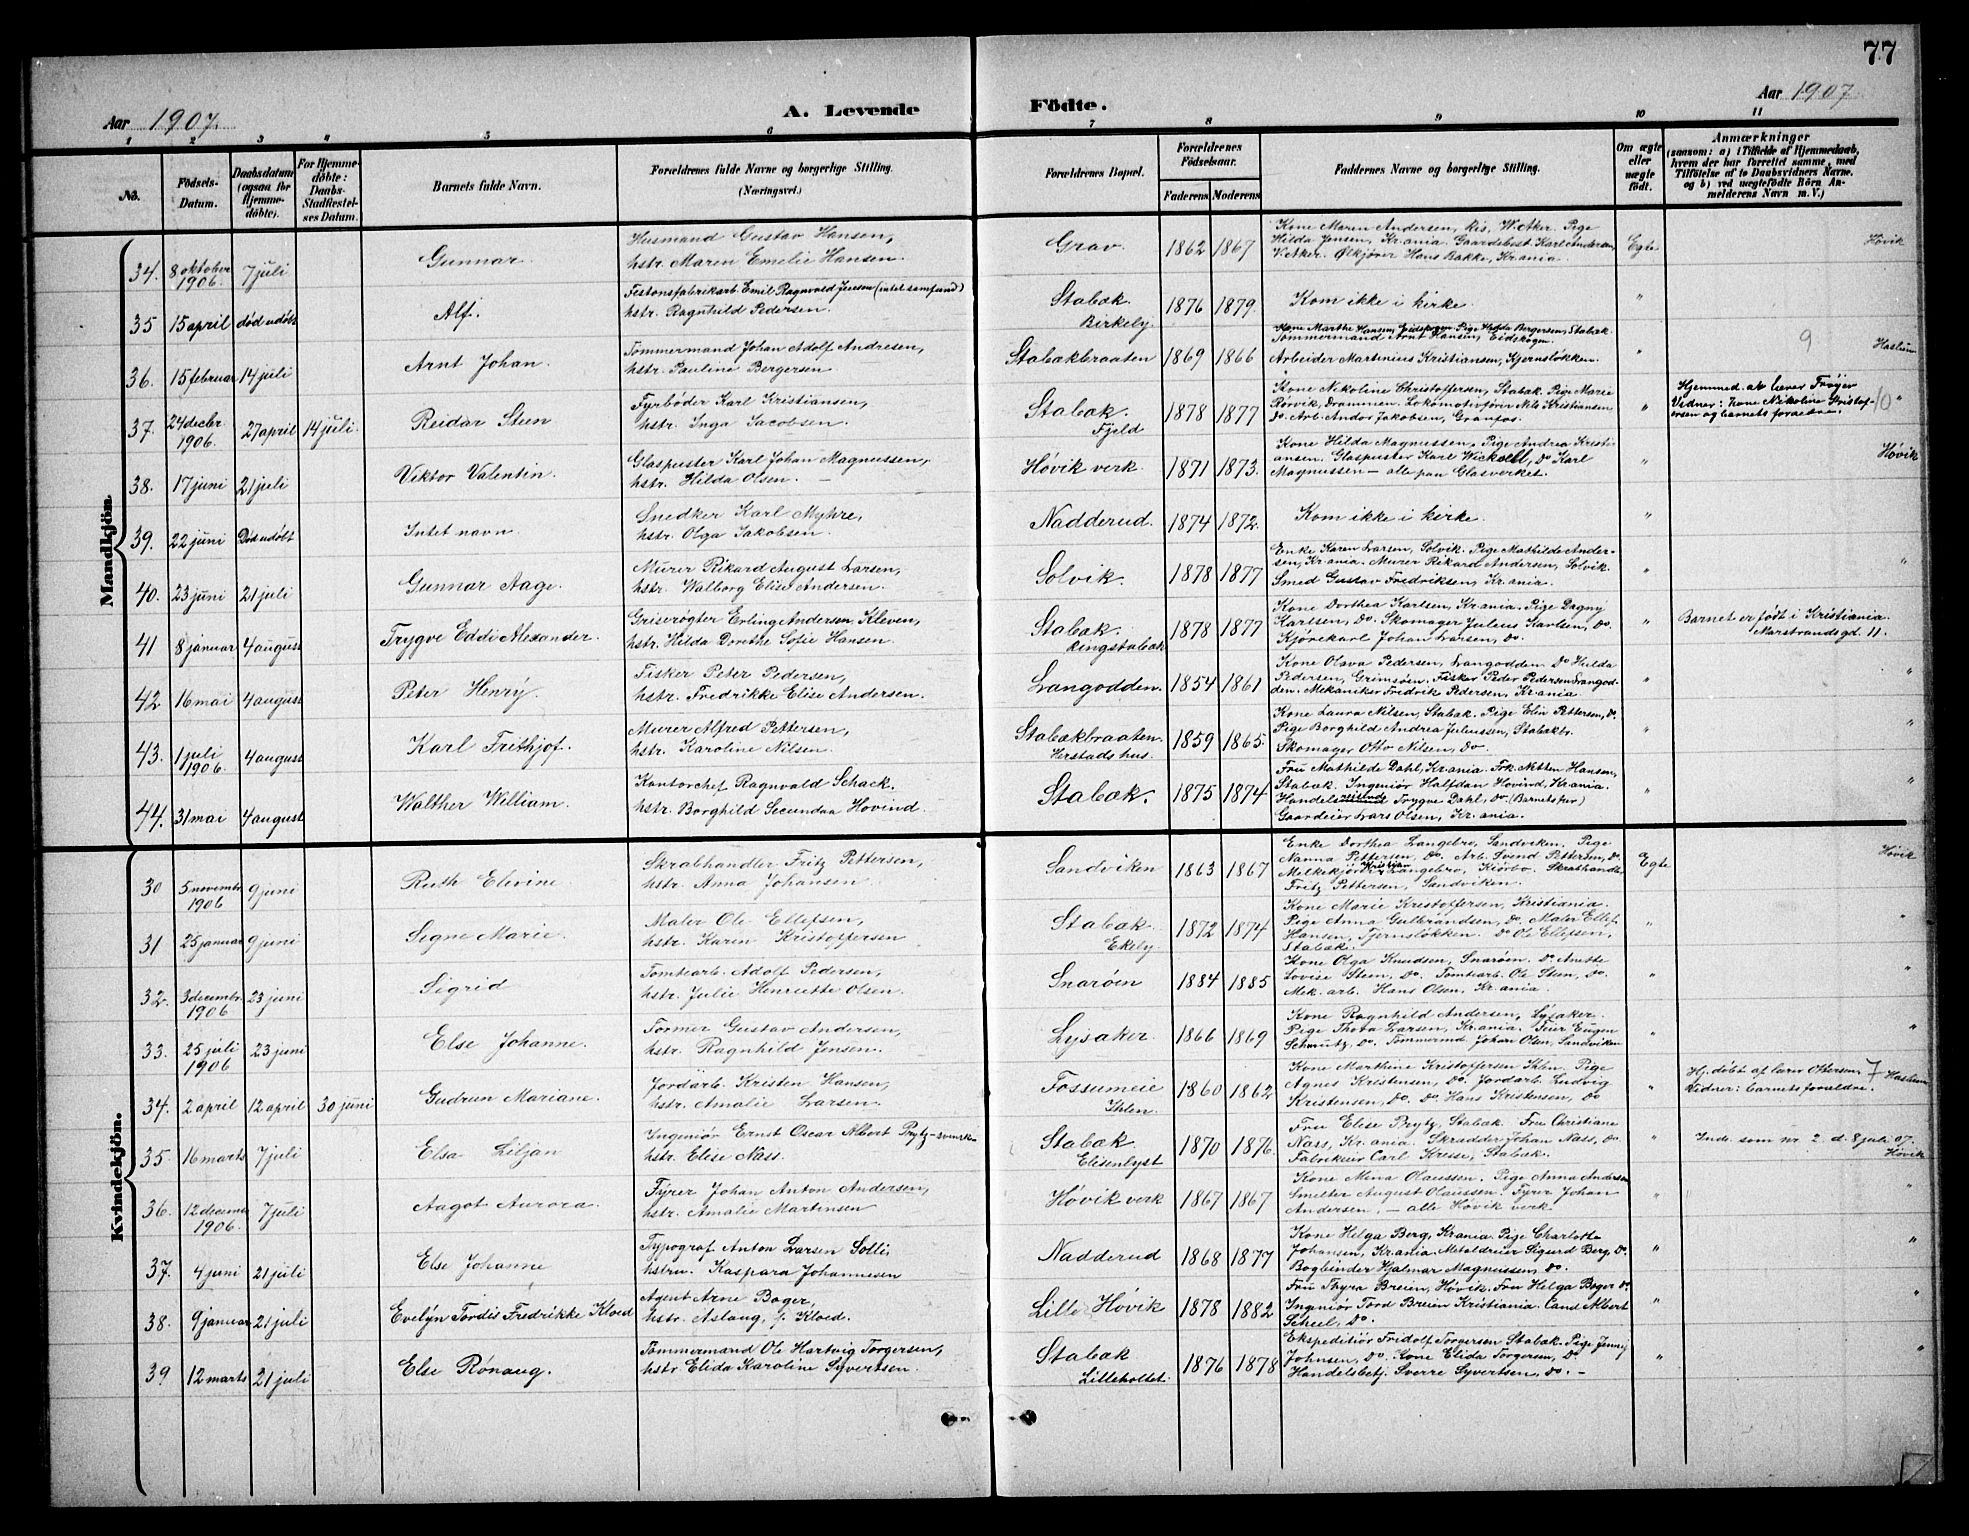 77
Aar 1907.
A. Levende
Födte.
Aar 1907
1 2 3 4 5 6 7 8 9 10 11
No.
Födsels-Datum.
Daabsdatum (ogsaa for Hjemme-döbte).
For Hjemme-döbte: Daabs-Stadfæstel-ses Datum.
Barnets fulde Navn.
Forældrenes fulde Navne og borgerlige Stilling.
(Næringsvei.)
Forældrenes Bopæl.
Forældrenes Födselsaar.
Faderens Moderens
Faddernes Navne og borgerlige Stilling.
Om ægte eller uægte födt.
Anmærkninger
(saasom: a) i Tilfælde af Hjemmedaab, hvem der har forrettet samme, med Tilföielse af to Daabsvidners Navne, og b) ved uægtefödte Börn Anmelderens Navn m. V.)
Mandkjön.
34. 8 oktober 1906 7 juli Gunnar.
Husmand Gustav Hansen,
hstr. Maren Emelie Hansen.
Grav. 1862 1867
Kone Maren Andersen, Lis. Vækker. Pige
Hilda Jensen, Kr.ania. Gaardsbest. Karl Andersen,
Vækker. Ølkjører Hans Bakke, Kr.ania.
Egte
Høvik
35 15 april død udøbt Alf.
Festonsfabrikarb. Emil Ragnvald Jensen (intet samfund)
hstr. Ragnhild Pedersen.
Stabæk. Birkely. 1876 1879.
Kom ikke i kirke.
"
36. 15 februar 14 juli Arnt Johan.
Tømmermand Johan Adolf Andresen,
hstr. Pauline Bergersen
Stabækbraaten 1869 1866
Kone Marthe Hansen, Eidskogen. Pige Hilda Bergersen, Stabæk.
Tømmermand Arnt Hansen, Eidskogn.
Arbeider Martinius Kristiansen, Kjernsløkken.
"
9
Haslum
37. 24 decbr. 1906 27 april 14 juli. Reidar Steen
Fyrbøder Karl Kristiansen,
hstr. Inga Jacobsen.
Stabæk. Fjeld 1878 1877
Kone Nikoline Christoffersen, Stabæk. Pige Marie
Rørvik, Drammen. Lokomotivfører Nils Kristiansen
Do. Arb. Andor Jakobsen, Granfos.
"
Hjemmed. af lærer Frøyer
Vidner: kone Nikoline Kristof-
ersen og barnets forældre.
10 "
38. 17 juni 21 juli Viktor Valentin.
Glaspuster Karl Johan Magnussen,
hstr. Hilda Olsen. —
Høvik verk 1871 1873.
Kone Hilda Magnussen, Pige Andrea Kristi-
ansen. Glaspuster Karl Wickvell, do Karl
Magnussen — alle paa Glasverket.
"
Høvik
39. 22 juni Død udøbt Intet navn
Snedker Karl Myhre,
hstr. Olga Jakobsen.
Nadderud. 1874 1872.
Kom ikke i kirke.
"
40. 23 juni 21 juli Gunnar Aage.
Murer Rikard August Larsen,
hstr. Walborg Elise Andersen.
Solvik. 1878 1877
Enke Karen Larsen, Solvik. Pige Mathilde Ander-
sen, Kr.ania. Murer Rikard Andersen, Solvik.
Smed Gustav Fredriksen, Kr.ania.
"
"
41 8 januar 4 august Trygve Eddi Alexander.
Griserøgter Erling Andersen Kleven,
hstr. Hilda Dorthe Sofie Hansen.
Stabæk. Ringstabæk 1878 1877
Kone Dorthea Karlsen, Kr.ania. Pige Dagny
Karlsen, do. Skomager Julius Karlsen, do.
Kjørekarl Johan Larsen, do.
"
Barnet er født i Kristiania
Marstrandsgd. 11.
42 16 mai 4 august Peter Henry.
Fisker Peter Pedersen,
hstr. Fredrikke Elise Andersen.
Langodden. 1854 1861
Kone Olava Pedersen, Langodden. Do Hulda
Pedersen, Grimsøen. Fisker Peder Pedersen Langod-
den. Mekaniker Fredrik Pedersen, Kr.ania.
"
"
43. 1 juli 1906. 4 august Karl Frithjof.
Murer Alfred Pettersen,
hstr. Karoline Nilsen.
Stabækbraaten. Herstads hus. 1859 1865.
Kone Laura Nilsen, Stabæk. Pige Elin Pettersen, do.
Pige Borghild Andrea Juliussen, Stabækbr.
Skomager Otto Nilsen, do.
"
"
44. 31 mai 4 august Walther William.
Kontorchef Ragnvald Schack,
hstr. Borghild Secundaa Hovind.
Stabæk. 1875 1874
Fru Mathilde Dahl, Kr.ania. Frk. Netten Hansen,
Stabæk. Ingeniør Halfdan Hovind, Kr.ania.
Handelsreisende Trygve Dahl, do (Barnets far)
Gaardeier Lars Olsen, Kr.ania.
"
"
Kvindekjön.
30 5 novembr. 1906 9 juni Ruth Elevine.
Skrabhandler Fritz Pettersen,
hstr. Anna Johansen.
Sandviken 1863 1867
Enke Dorthea Langebre, Sandviken. Pige
Nanna Pettersen, Do. Arb. Svend Pettersen, do.
Melkekjører Kristian Langebro, Kiørbo. Skrabhandler
Fritz Pettersen, Sandviken.
Egte
Høvik
31 25 januar 9 juni Signe Marie.
Maler Ole Ellefsen,
hstr. Karen Kristoffersen
Stabæk Ekely 1872 1874
Kone Marie Kristoffersen, Kristiania.
Pige Anna Gulbrandsen, do. Maler Ellef
Hansen, Tjernsløkken. Do Ole Ellefsen,
Stabæk.
"
"
32. 3 decembr. 1906 23 juni Sigrid
Tomtearb. Adolf Pedersen,
hstr. Julie Henriette Olsen.
Snarøen 1884 1885
Kone Olga Knudsen, Snarøen. Do. Anette
Lovise Steen, do. Tomtearb. Ole Steen, do.
Mek. arb. Hans Olsen, Kr.ania.
"
"
33. 25 juli 1906 23 juni Else Johanne.
Former Gustav Andersen,
hstr. Ragnhild Jensen.
Lysaker. 1866 1869
Kone Ragnhild Andersen, Lysaker.
Pige Thora Larsen, Kr.ania. Feier Eugen
Schmutz, do. Tømmermd. Johan Olsen, Sandviken
"
"
34. 2 april 12 april 30 juni Gudrun Mariane.
Jordarb. Kristen Hansen,
hstr. Amalie Larsen.
Fossumeie Ihlen. 1860 1862
Kone Marthine Kristoffersen Ihlen. Pige
Agnes Kristensen, do. Jordarb. Ludvig
Kristensen, do. do. Hans Kristensen, do
"
Hj. døbt af lærer Ottersen.
Vidner: barnets forældre.
7 Haslum
35. 16 marts 7 juli Elsa Liljan
Ingeniør Ernst Oscar Albert Prytz - svensk -
hstr. Elise Nass.
Stabæk Elisenlyst 1870 1876.
Fru Elise Prytz, Stabæk. Fru Christiane
Nass, Kr.ania. Skrædder Johan Nass, do.
Fabrikeier Carl Kresse, Stabæk.
"
Ind. som nr. 2. d. 8 juli 07.
Høvik
36. 12 decembr 1906. 7 juli Aagot Aurora.
Fyrer Johan Anton Andersen,
hstr. Amalie Martinsen
Høvik verk 1867 1867
Kone Mina Olaussen. Pige Anna Andersen
Smelter August Olaussen. Fyrer Johan
Andersen, — alle Høvik verk.
"
"
37. 4 juni 21 juli Else Johanne
Typograf Anton Larsen Solli
hstru. Kaspara Johannesen
Nadderud 1868 1877
Kone Helga Berg, Kr.ania. Pige Charlotte
Johansen, Kr.ania. Metaldreier Sigurd Berg, do.
Bogbinder Hjalmar Magnussen, do.
"
"
38. 9 januar 21 juli Evelyn Tordis Fredrikke Kloed
Agent Arne Boger,
hstr. Aslaug, f. Kloed.
Lille Høvik 1878 1882
Fru Thyra Breien, Høvik. Fru Helga Boger do.
Ingeniør Tord Breien Kristiania. Cand. Albert
Scheel, do.
"
"
39 12 marts 21 juli Else Rønaug.
Tømmermand Ole Hartvig Torgersen,
hstr Elida Karoline Syvertsen.
Stabæk Lilleholtet. 1876 1878
Ekspeditiør Fridolf Torgersen Stabæk. Pige Jenny
Johnsen, do. Kone Elida Torgersen, do
Handelsbetj. Sverre Syvertsen, do. —
"
"